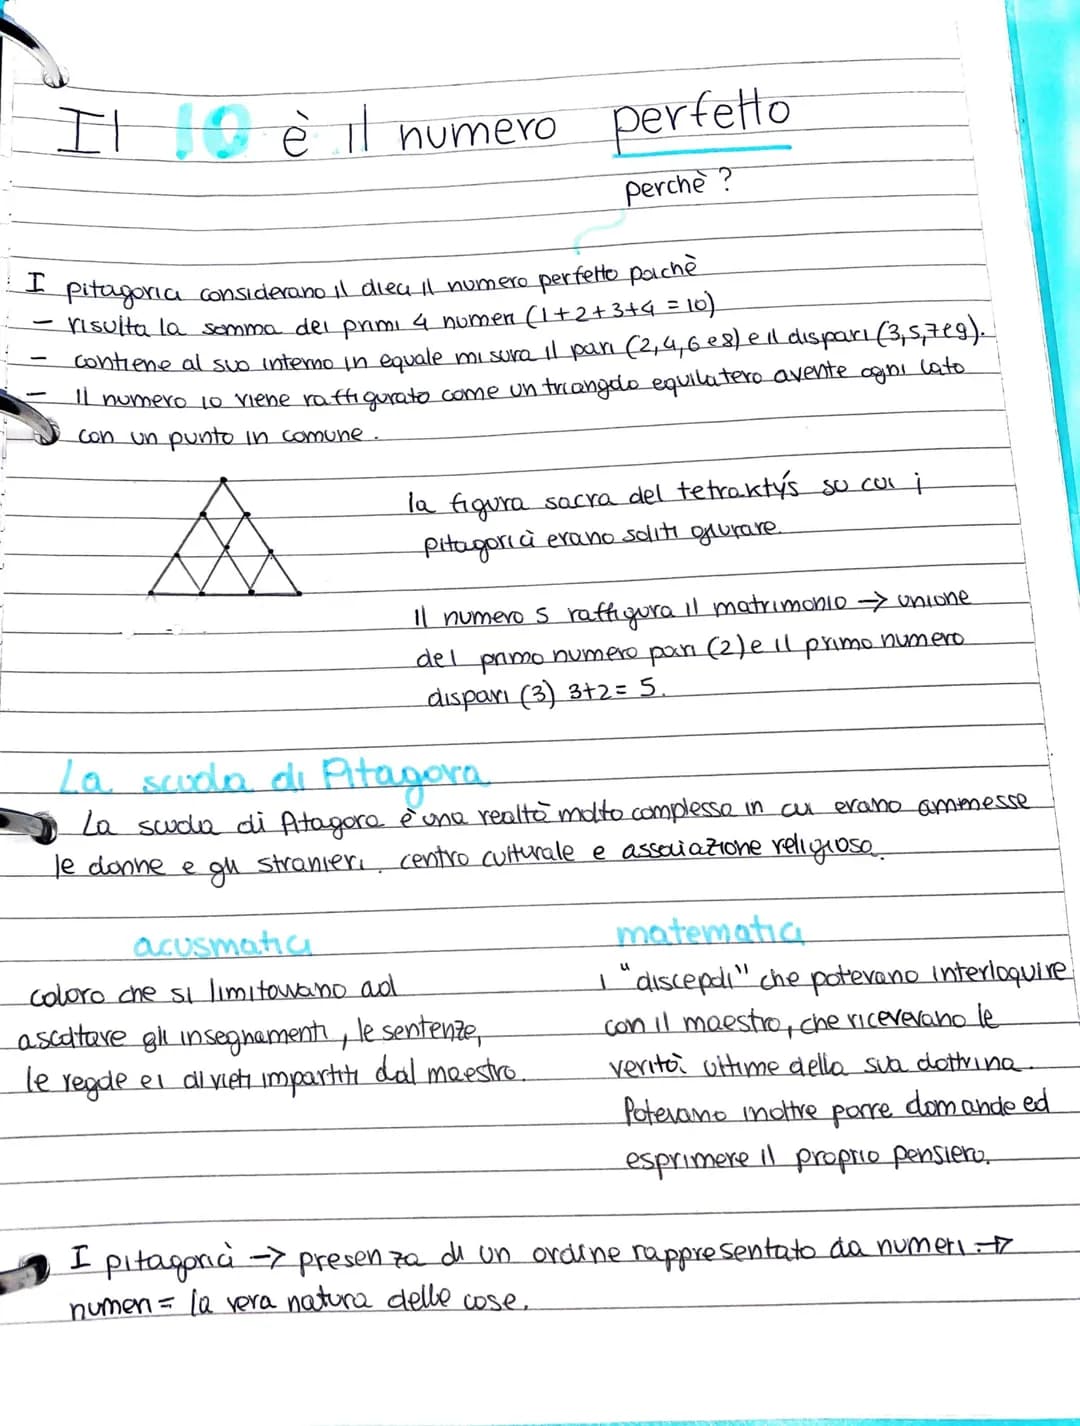 Il 10 è il numero perfetto
perchè ?
I pitagorici considerano il dieci il numero perfetto poichè
- risulta la somma dei primi 4 numeri (1+2+3+4 = 10)
- contiene al suo interno in equale misura il pari (2,4,6 e 8) e il dispari (3,5,7 e 9).
- Il numero 10 viene raffigurato come un triangolo equilatero avente ogni lato
con un punto in comune.
la figura sacra del tetraktýs su cui i
pitagorici erano soliti giurare.
Il numero 5 raffigura il matrimonio → unione
del primo numero pari (2) e il primo numero
dispari (3) 3+2= 5.
La scuola di Pitagora
La scuola di Pitagora è una realtà molto complessa in cui erano ammesse
le donne e gli stranieri, centro culturale e associazione religiosa.
acusmatici
coloro che si limitavano ad
ascoltare gli insegnamenti, le sentenze,
le regole e i divieti impartiti dal maestro.
matematici
i "discepoli" che potevano interloquire
con il maestro, che ricevevano le
verità ultime della sua dottrina.
Potevano inoltre porre domande ed
esprimere il proprio pensiero.
I pitagorici → presenza di un ordine rappresentato da numeri →
numeri = la vera natura delle cose.